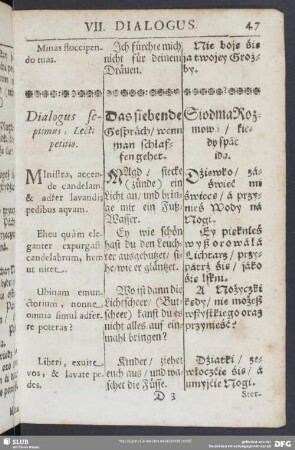 VII. DIALOGUS. 47
Minas floccipen-
do tuas.
Ich fürchte mich
nicht für deinem
Dräuen.
Nie boje śie
ja twojey Groź-
by.
Dialogus se-
ptimus, Lecti
petitio.
Das siebende
Gespräch / wenn
man schlaf-
fen gehet.
Siodma Roz-
mowa / kie-
dy spać
ida.
MInistra, accen-
de candelam,
& adfer lavandis
pedibus aqvam.
MAgd / stecke
(zünde) ein
Licht an / und brin-
ge mir ein Fuß-
Wasser.
Dźiewko / za-
świeć mi
świece / á przy-
nieś Wody ná
Nogi.
Eheu quàm ele-
ganter expurgasti
candelabrum, hem
ut nitet.
Ey wie schön
hast du den Leuch-
ter ausgebutzet / sie-
he / wie er gläntzet.
Ey pieknieś
wyßorowálá
Lichtarz / przy-
patrz śie / jáko
śie lśkni.
Ubinam emun-
ctorium, nonne
omnia simul adfer-
re poteras?
Wo ist dann die
Lichtscheer / (But-
scheer) kanst du es
nicht alles auf ein-
mahl bringen?
A Nożyczki
kedy / nie możeß
wßystkiego oraz
przynieść?
Liberi, exuite
vos, & lavate pe-
des.
Kinder / ziehet
euch aus / und wa-
schet die Füsse.
Dźiatki / ze-
wloczćie śie / á
umyjćie Nogi.
D 3
Ster-
SLUB
DFG